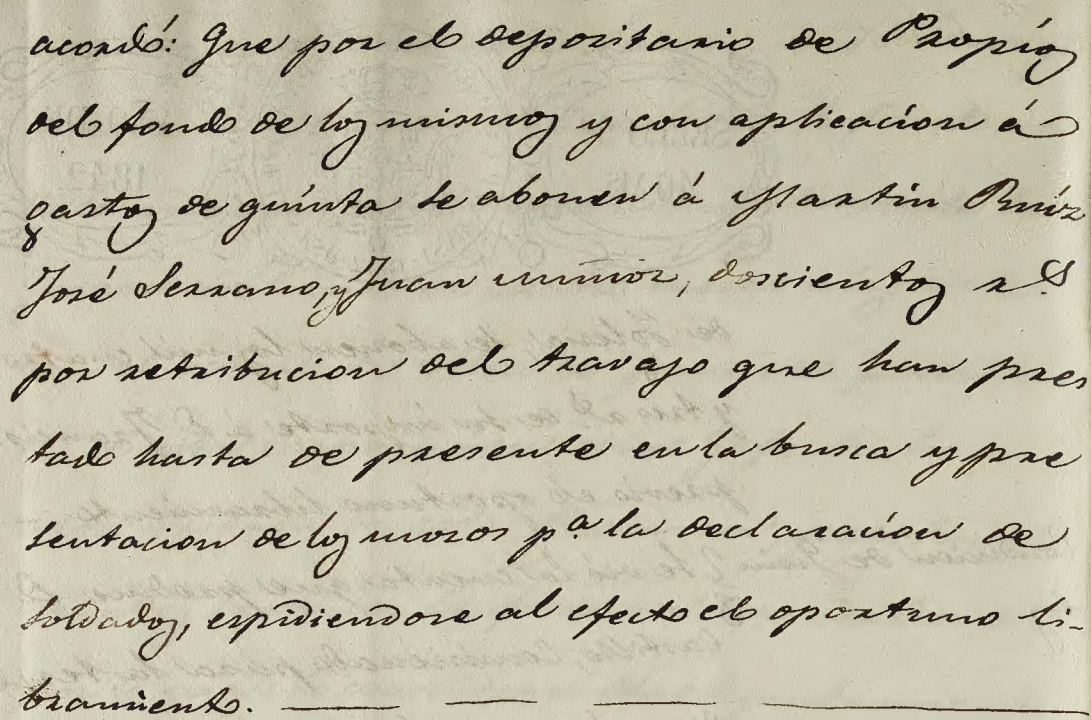 acordó: Que por el depositario de Propios
del fondo de los mismos y con aplicacion á
gastos de quinta se abonen á Martin Ruiz
José Serrano, y Juan muñoz, doscientos rs
por retribucion del travajo que han pres
tado hasta de presente en la busca y pre
sentacion de los mozos pa. la declaracion de
soldados, espidiendose al efecto el oportuno li-
bramiento.